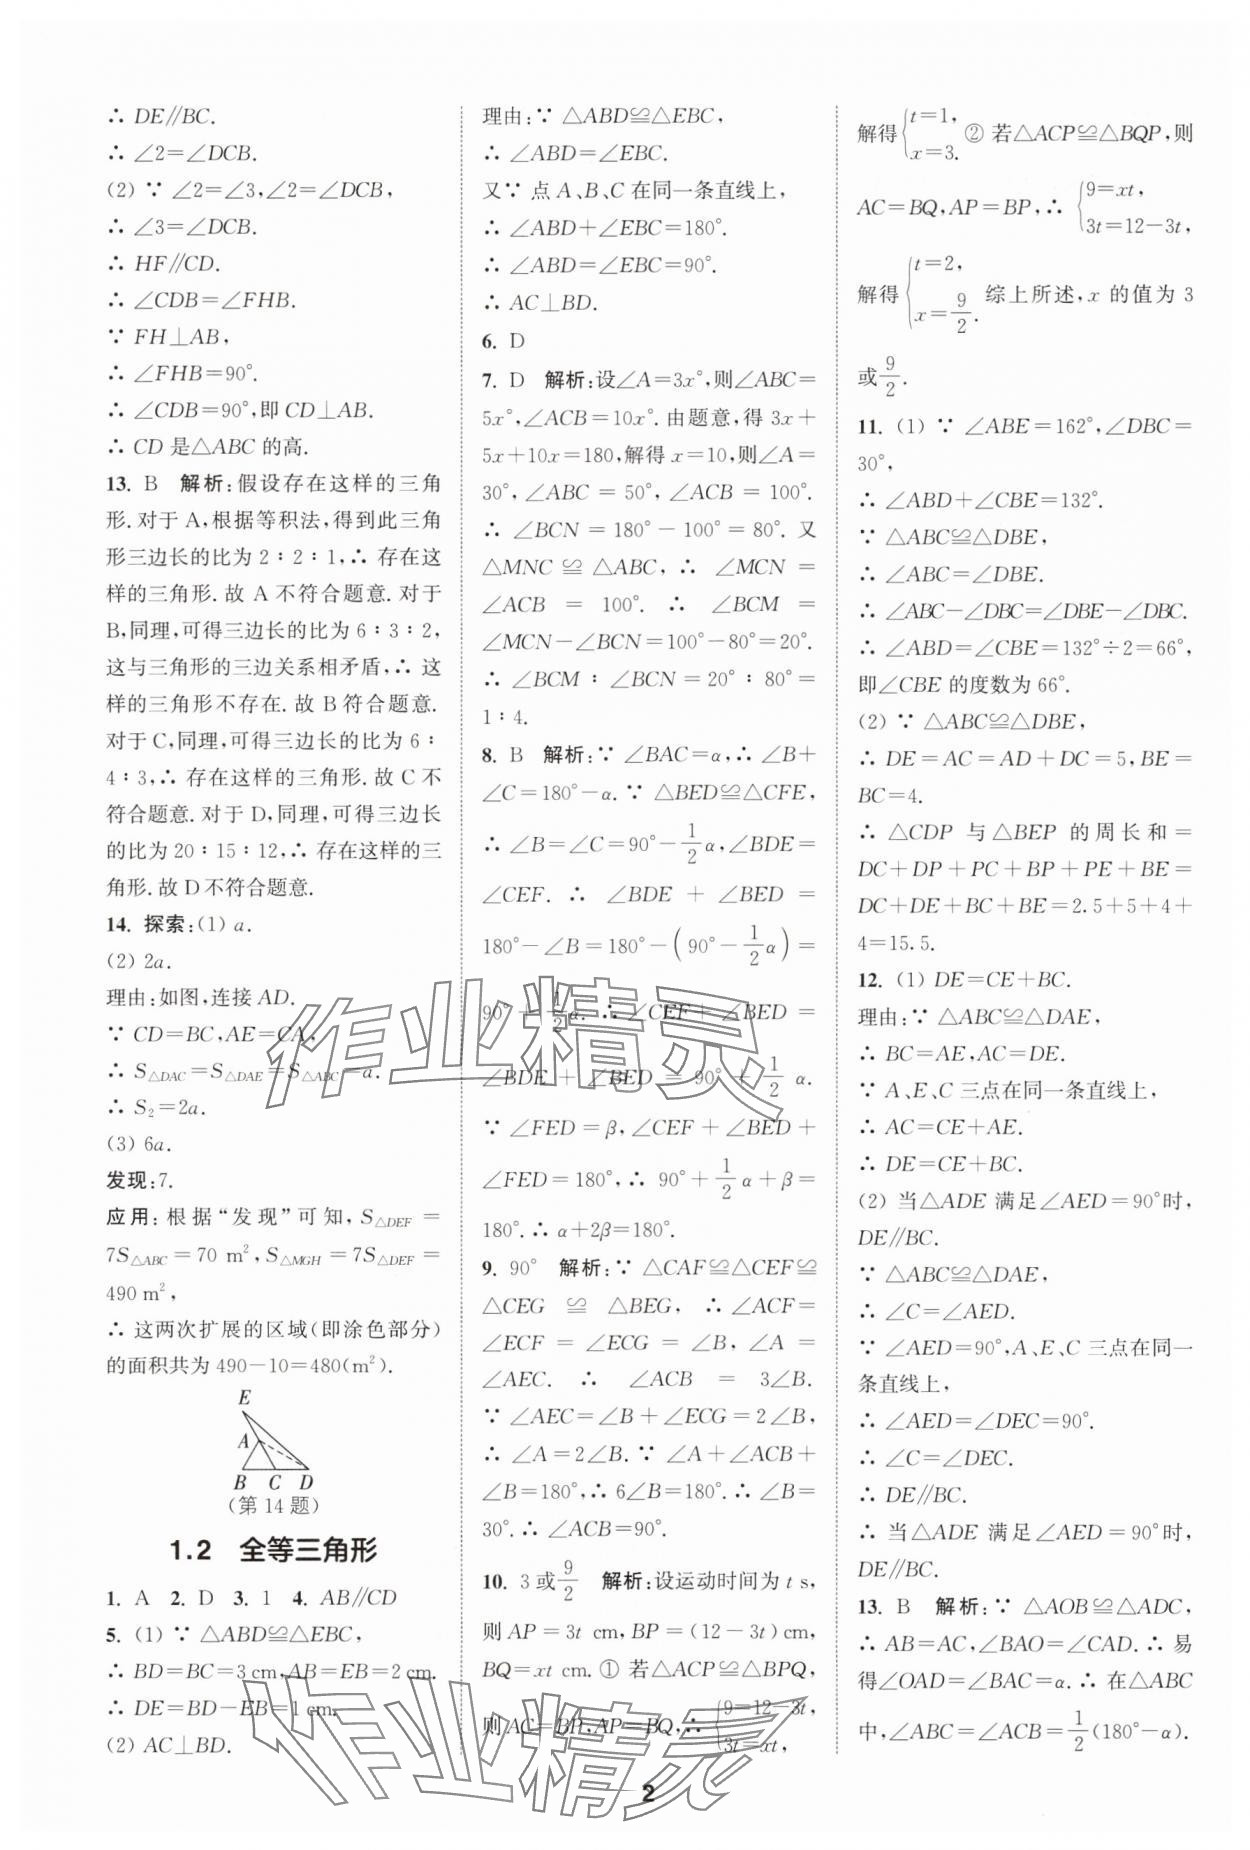 ∴ DE∥BC.
∴ ∠2=∠DCB.
(2) ∵ ∠2=∠3,∠2=∠DCB,
∴ ∠3=∠DCB.
∴ HF∥CD.
∴ ∠CDB=∠FHB.
∵ FH⊥AB,
∴ ∠FHB=90°.
∴ ∠CDB=90°,即 CD⊥AB.
∴ CD 是△ABC 的高.
13. B 解析:假设存在这样的三角
形.对于 A,根据等积法,得到此三角
形三边长的比为 2∶2∶1,∴ 存在这
样的三角形.故 A 不符合题意.对于
B,同理,可得三边长的比为 6∶3∶2,
这与三角形的三边关系相矛盾,∴ 这
样的三角形不存在.故 B 符合题意.
对于 C,同理,可得三边长的比为 6∶
4∶3,∴ 存在这样的三角形.故 C 不
符合题意.对于 D,同理,可得三边长
的比为 20∶15∶12,∴ 存在这样的三
角形.故 D 不符合题意.
14. 探索:(1) a.
(2) 2a.
理由:如图,连接 AD.
∵ CD=BC,AE=CA,
∴ S△DAC=S△DAE=S△ABC=a.
∴ S₂=2a.
(3) 6a.
发现:7.
应用:根据“发现”可知,S△DEF=
7S△ABC=70 m²,S△MGH=7S△DEF=
490 m²,
∴ 这两次扩展的区域(即涂色部分)
的面积共为 490-10=480(m²).
E
A
B C D
(第 14 题)
1.2 全等三角形
1. A 2. D 3. 1 4. AB∥CD
5. (1) ∵ △ABD≌△EBC,
∴ BD=BC=3 cm,AB=EB=2 cm.
∴ DE=BD-EB=1 cm.
(2) AC⊥BD.
理由:∵ △ABD≌△EBC,
∴ ∠ABD=∠EBC.
又∵ 点 A、B、C 在同一条直线上,
∴ ∠ABD+∠EBC=180°.
∴ ∠ABD=∠EBC=90°.
∴ AC⊥BD.
6. D
7. D 解析:设∠A=3x°,则∠ABC=
5x°,∠ACB=10x°.由题意,得 3x+
5x+10x=180,解得 x=10,则∠A=
30°,∠ABC=50°,∠ACB=100°.
∴ ∠BCN=180°-100°=80°.又
△MNC≌△ABC,∴ ∠MCN=
∠ACB=100°.∴ ∠BCM=
∠MCN-∠BCN=100°-80°=20°.
∴ ∠BCM∶∠BCN=20°∶80°=
1∶4.
8. B 解析:∵ ∠BAC=α,∴ ∠B+
∠C=180°-α.∵ △BED≌△CFE,
∴ ∠B=∠C=90°-1/2α,∠BDE=
∠CEF.∴ ∠BDE+∠BED=
180°-∠B=180°-(90°-1/2α)=
90°+1/2α.∴ ∠CEF+∠BED=
∠BDE+∠BED=90°+1/2α.
∵ ∠FED=β,∠CEF+∠BED+
∠FED=180°,∴ 90°+1/2α+β=
180°.∴ α+2β=180°.
9. 90° 解析:∵ △CAF≌△CEF≌
△CEG≌△BEG,∴ ∠ACF=
∠ECF=∠ECG=∠B,∠A=
∠AEC.∴ ∠ACB=3∠B.
∵ ∠AEC=∠B+∠ECG=2∠B,
∴ ∠A=2∠B.∵ ∠A+∠ACB+
∠B=180°,∴ 6∠B=180°.∴ ∠B=
30°.∴ ∠ACB=90°.
10. 3或9/2 解析:设运动时间为 t s,
则 AP=3t cm,BP=(12-3t)cm,
BQ=xt cm.① 若△ACP≌△BPQ,
则 AC=BP,AP=BQ,∴ {9=12-3t,
3t=xt,
解得{t=1,
x=3. ② 若△ACP≌△BQP,则
AC=BQ,AP=BP,∴ {9=xt,
3t=12-3t,
解得{t=2,
x=9/2. 综上所述,x 的值为 3
或9/2.
11. (1) ∵ ∠ABE=162°,∠DBC=
30°,
∴ ∠ABD+∠CBE=132°.
∵ △ABC≌△DBE,
∴ ∠ABC=∠DBE.
∴ ∠ABC-∠DBC=∠DBE-∠DBC.
∴ ∠ABD=∠CBE=132°÷2=66°,
即∠CBE 的度数为 66°.
(2) ∵ △ABC≌△DBE,
∴ DE=AC=AD+DC=5,BE=
BC=4.
∴ △CDP 与△BEP 的周长和=
DC+DP+PC+BP+PE+BE=
DC+DE+BC+BE=2.5+5+4+
4=15.5.
12. (1) DE=CE+BC.
理由:∵ △ABC≌△DAE,
∴ BC=AE,AC=DE.
∵ A、E、C 三点在同一条直线上,
∴ AC=CE+AE.
∴ DE=CE+BC.
(2) 当△ADE 满足∠AED=90°时,
DE∥BC.
∵ △ABC≌△DAE,
∴ ∠C=∠AED.
∵ ∠AED=90°,A、E、C 三点在同一
条直线上,
∴ ∠AED=∠DEC=90°.
∴ ∠C=∠DEC.
∴ DE∥BC.
∴ 当△ADE 满足∠AED=90°时,
DE∥BC.
13. B 解析:∵ △AOB≌△ADC,
∴ AB=AC,∠BAO=∠CAD.∴ 易
得∠OAD=∠BAC=α.∴ 在△ABC
中,∠ABC=∠ACB=1/2(180°-α).
作业精灵
作业精灵
2